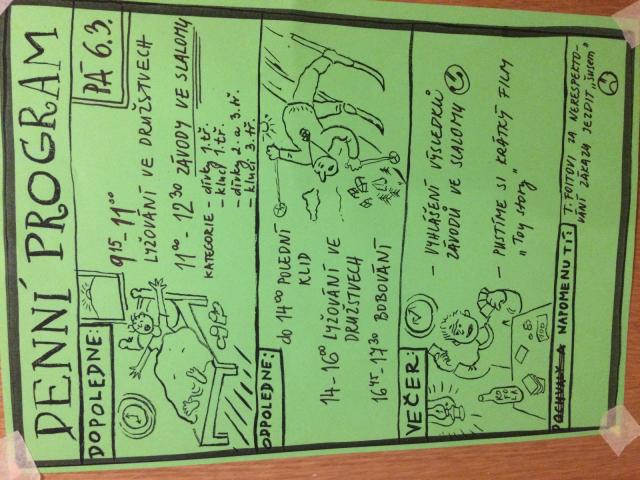 DENNÍ PROGRAM
PÁ 6.3.
DOPOLEDNE:
9¹⁵-11⁰⁰
LYŽOVÁNÍ VE DRUŽSTVECH
11⁰⁰ - 12³⁰ ZÁVODY VE SLALOMU
KATEGORIE - dívky 1.tř.
- kluci 1.tř.
- dívky 2. a 3.tř.
- kluci 3.tř.
ODPOLEDNE:
do 14⁰⁰ POLEDNÍ
KLID
14-16⁰⁰ LYŽOVÁNÍ VE
DRUŽSTVECH
16⁴⁵-17³⁰ BOBOVÁNÍ
VEČER:
- VYHLÁŠENÍ VÝSLEDKŮ
ZÁVODŮ VE SLALOMU
- PUSTÍME SI KRÁTKÝ FILM
"Toy story"
KOFOLA
POCHVALY A NAPOMENUTÍ:
T. FOITOVI ZA NERESPEKTO-
VÁNÍ ZÁKAZU JEZDIT „šusem"